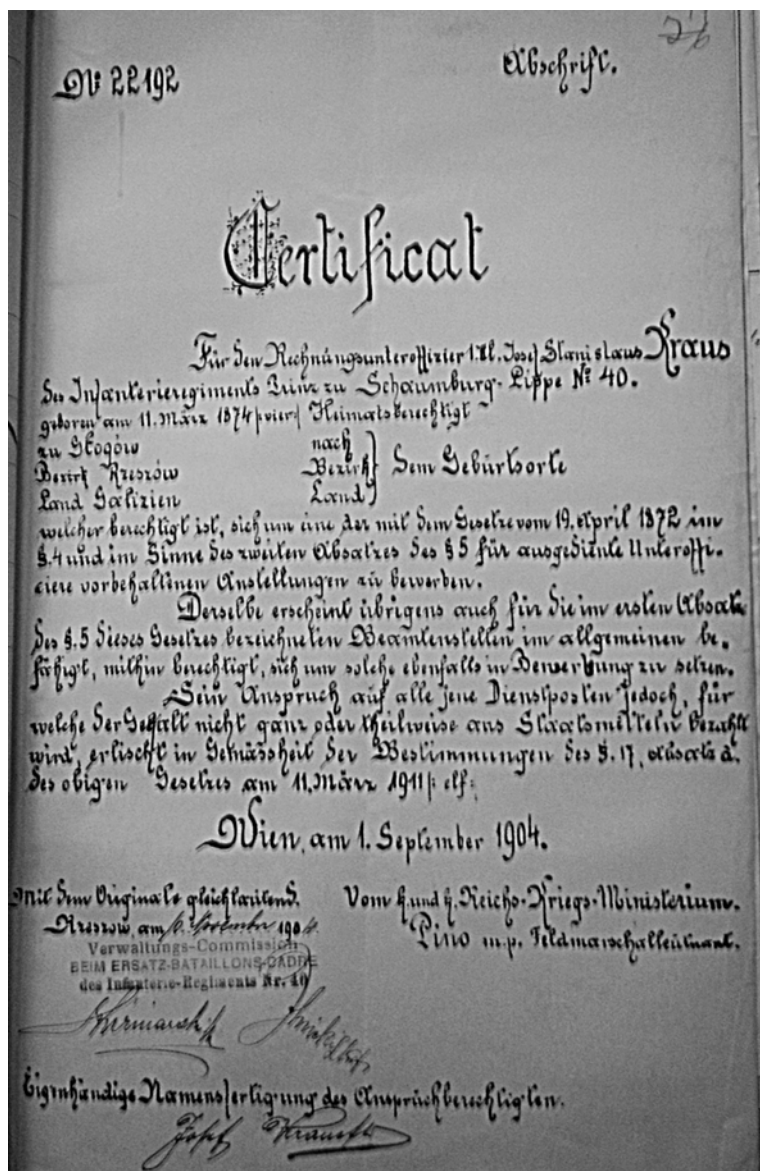 No 22192
Abschrift.
Certificat
Für den Rechnungsunteroffizier 1. Kl. Josef Stanislaus Kraus
des Infanterieregiments Prinz zu Schaumburg-Lippe No 40.
geboren am 11. März 1874 |: vier :| Heimatsberechtigt
zu Głogów nach
Bezirk Rzeszów Bezirk } dem Geburtsorte
Land Galizien Land
welcher berechtigt ist, sich um eine der mit dem Gesetze vom 19. April 1872 im
§. 4 und im Sinne des zweiten Absatzes des §5 für ausgediente Unteroffi-
ciere vorbehaltenen Anstellungen zu bewerben.
Derselbe erscheint übrigens auch für die im ersten Absatz
des §. 5 dieses Gesetzes bezeichneten Beamtenstellen im allgemeinen be-
fähigt, mithin berechtigt, sich um solche ebenfalls in Bewerbung zu setzen.
Sein Anspruch auf alle jene Dienstposten jedoch, für
welche der Gehalt nicht ganz oder theilweise aus Staatsmitteln bezahlt
wird, erlischt in Gemässheit der Bestimmungen des §. 17, Absatz a.
des obigen Gesetzes am 11. März 1911 |: elf :|
Wien, am 1. September 1904.
Mit dem Originale gleichlautend. Vom k. und k. Reichs-Kriegs-Ministerium.
Rzeszow, am November 1904. Pino m.p. Feldmarschalleutnant.
Verwaltungs-Commission
BEIM ERSATZ-BATAILLONS-CADRE
des Infanterie-Regiments Nr. 40
Eigenhändige Namensfertigung des Anspruchberechtigten.
Josef